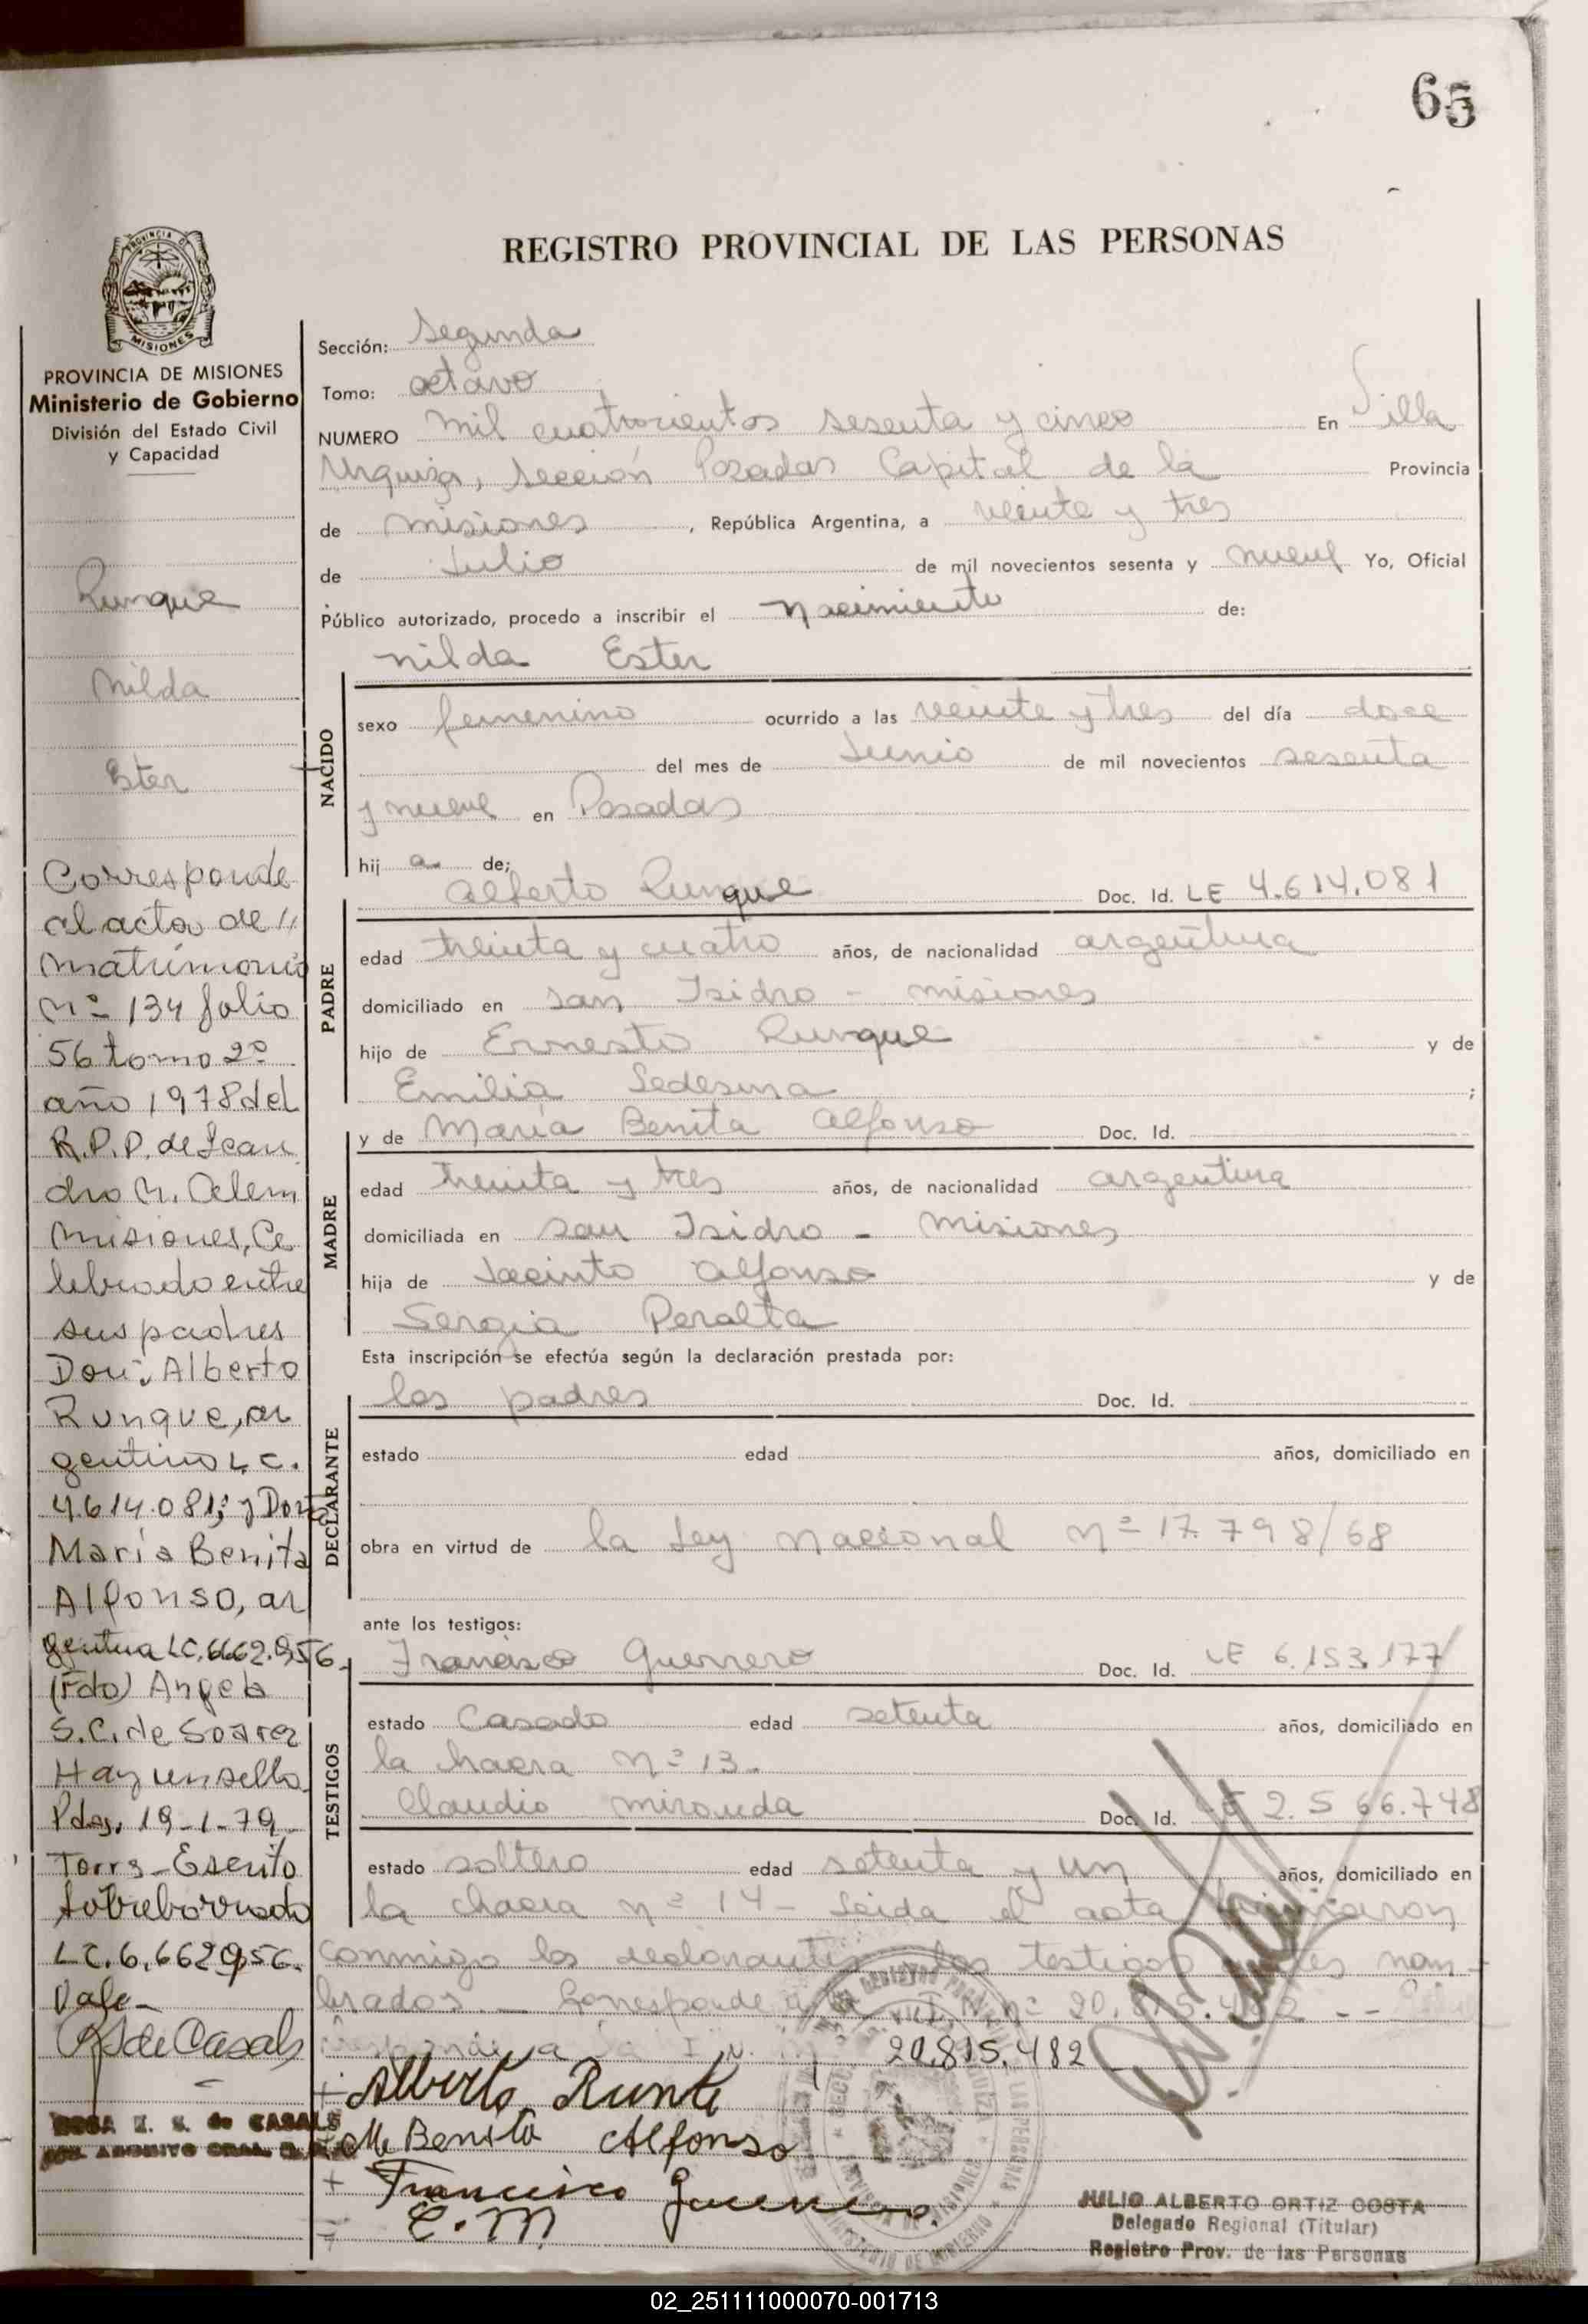 65
REGISTRO PROVINCIAL DE LAS PERSONAS
PROVINCIA DE MISIONES
Ministerio de Gobierno
División del Estado Civil
y Capacidad
Runque
Nilda
Ester
Corresponde
al acta de //
matrimonio
Nº 134 folio
56 tomo 2º
año 1978 del
R.P.P. de Lean
dro N. Alem
Misiones, Ce
lebrado entre
sus padres
Don: Alberto
Runque, ar
gentino L.C.
4.614.081; y Doña
María Benita
Alfonso, ar
gentina LC. 6.662.956.
(Fdo) Angela
S.C. de Soarez
Hay un sello
Pdas, 19-1-79-
Torrs-Escrito
sobreborrado
LC. 6.662956.
Vale-
de Casals
de CASALS
Sección: Segunda
Tomo: octavo
NUMERO mil cuatrocientos sesenta y cinco En Villa
Urquiza, sección Posadas Capital de la Provincia
de Misiones, República Argentina, a veinte y tres
de Julio de mil novecientos sesenta y nueve Yo, Oficial
Público autorizado, procedo a inscribir el nacimiento de:
Nilda Ester
NACIDO
sexo femenino ocurrido a las veinte y tres del día doce
del mes de Junio de mil novecientos sesenta
y nueve en Posadas
hij a de;
Alberto Runque Doc. Id. LE 4.614.081
PADRE
edad treinta y cuatro años, de nacionalidad argentina
domiciliado en San Isidro - Misiones
hijo de Ernesto Runque y de
Emilia Ledesma ;
y de María Benita Alfonso Doc. Id.
MADRE
edad treinta y tres años, de nacionalidad argentina
domiciliada en San Isidro - Misiones
hija de Jacinto Alfonso y de
Sergia Peralta
Esta inscripción se efectúa según la declaración prestada por:
los padres Doc. Id.
DECLARANTE
estado edad años, domiciliado en
obra en virtud de la Ley Nacional Nº 17.798/68
ante los testigos:
Francisco Guerrero Doc. Id. LE 6.153.177
TESTIGOS
estado Casado edad setenta años, domiciliado en
la chacra Nº 13.
Claudio Miranda Doc. Id. LE 2.566.748
estado soltero edad setenta y un años, domiciliado en
la chacra nº 14 - Leida el acta firmaron
conmigo los declarantes los testigos antes nom-
brados. - Corresponde a la I.N. nº 20.815.482 --
20.815.482
Alberto Runke
M Benita Alfonso
+ Francisco Guerrero.
C. M.
JULIO ALBERTO ORTIZ COSTA
Delegado Regional (Titular)
Registro Prov. de las Personas
02_251111000070-001713